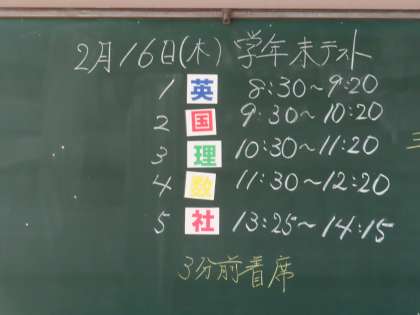 2月16日(木) 学年末テスト
1 英 8:30～9:20
2 国 9:30～10:20
3 理 10:30～11:20
4 数 11:30～12:20
5 社 13:25～14:15
3分前着席